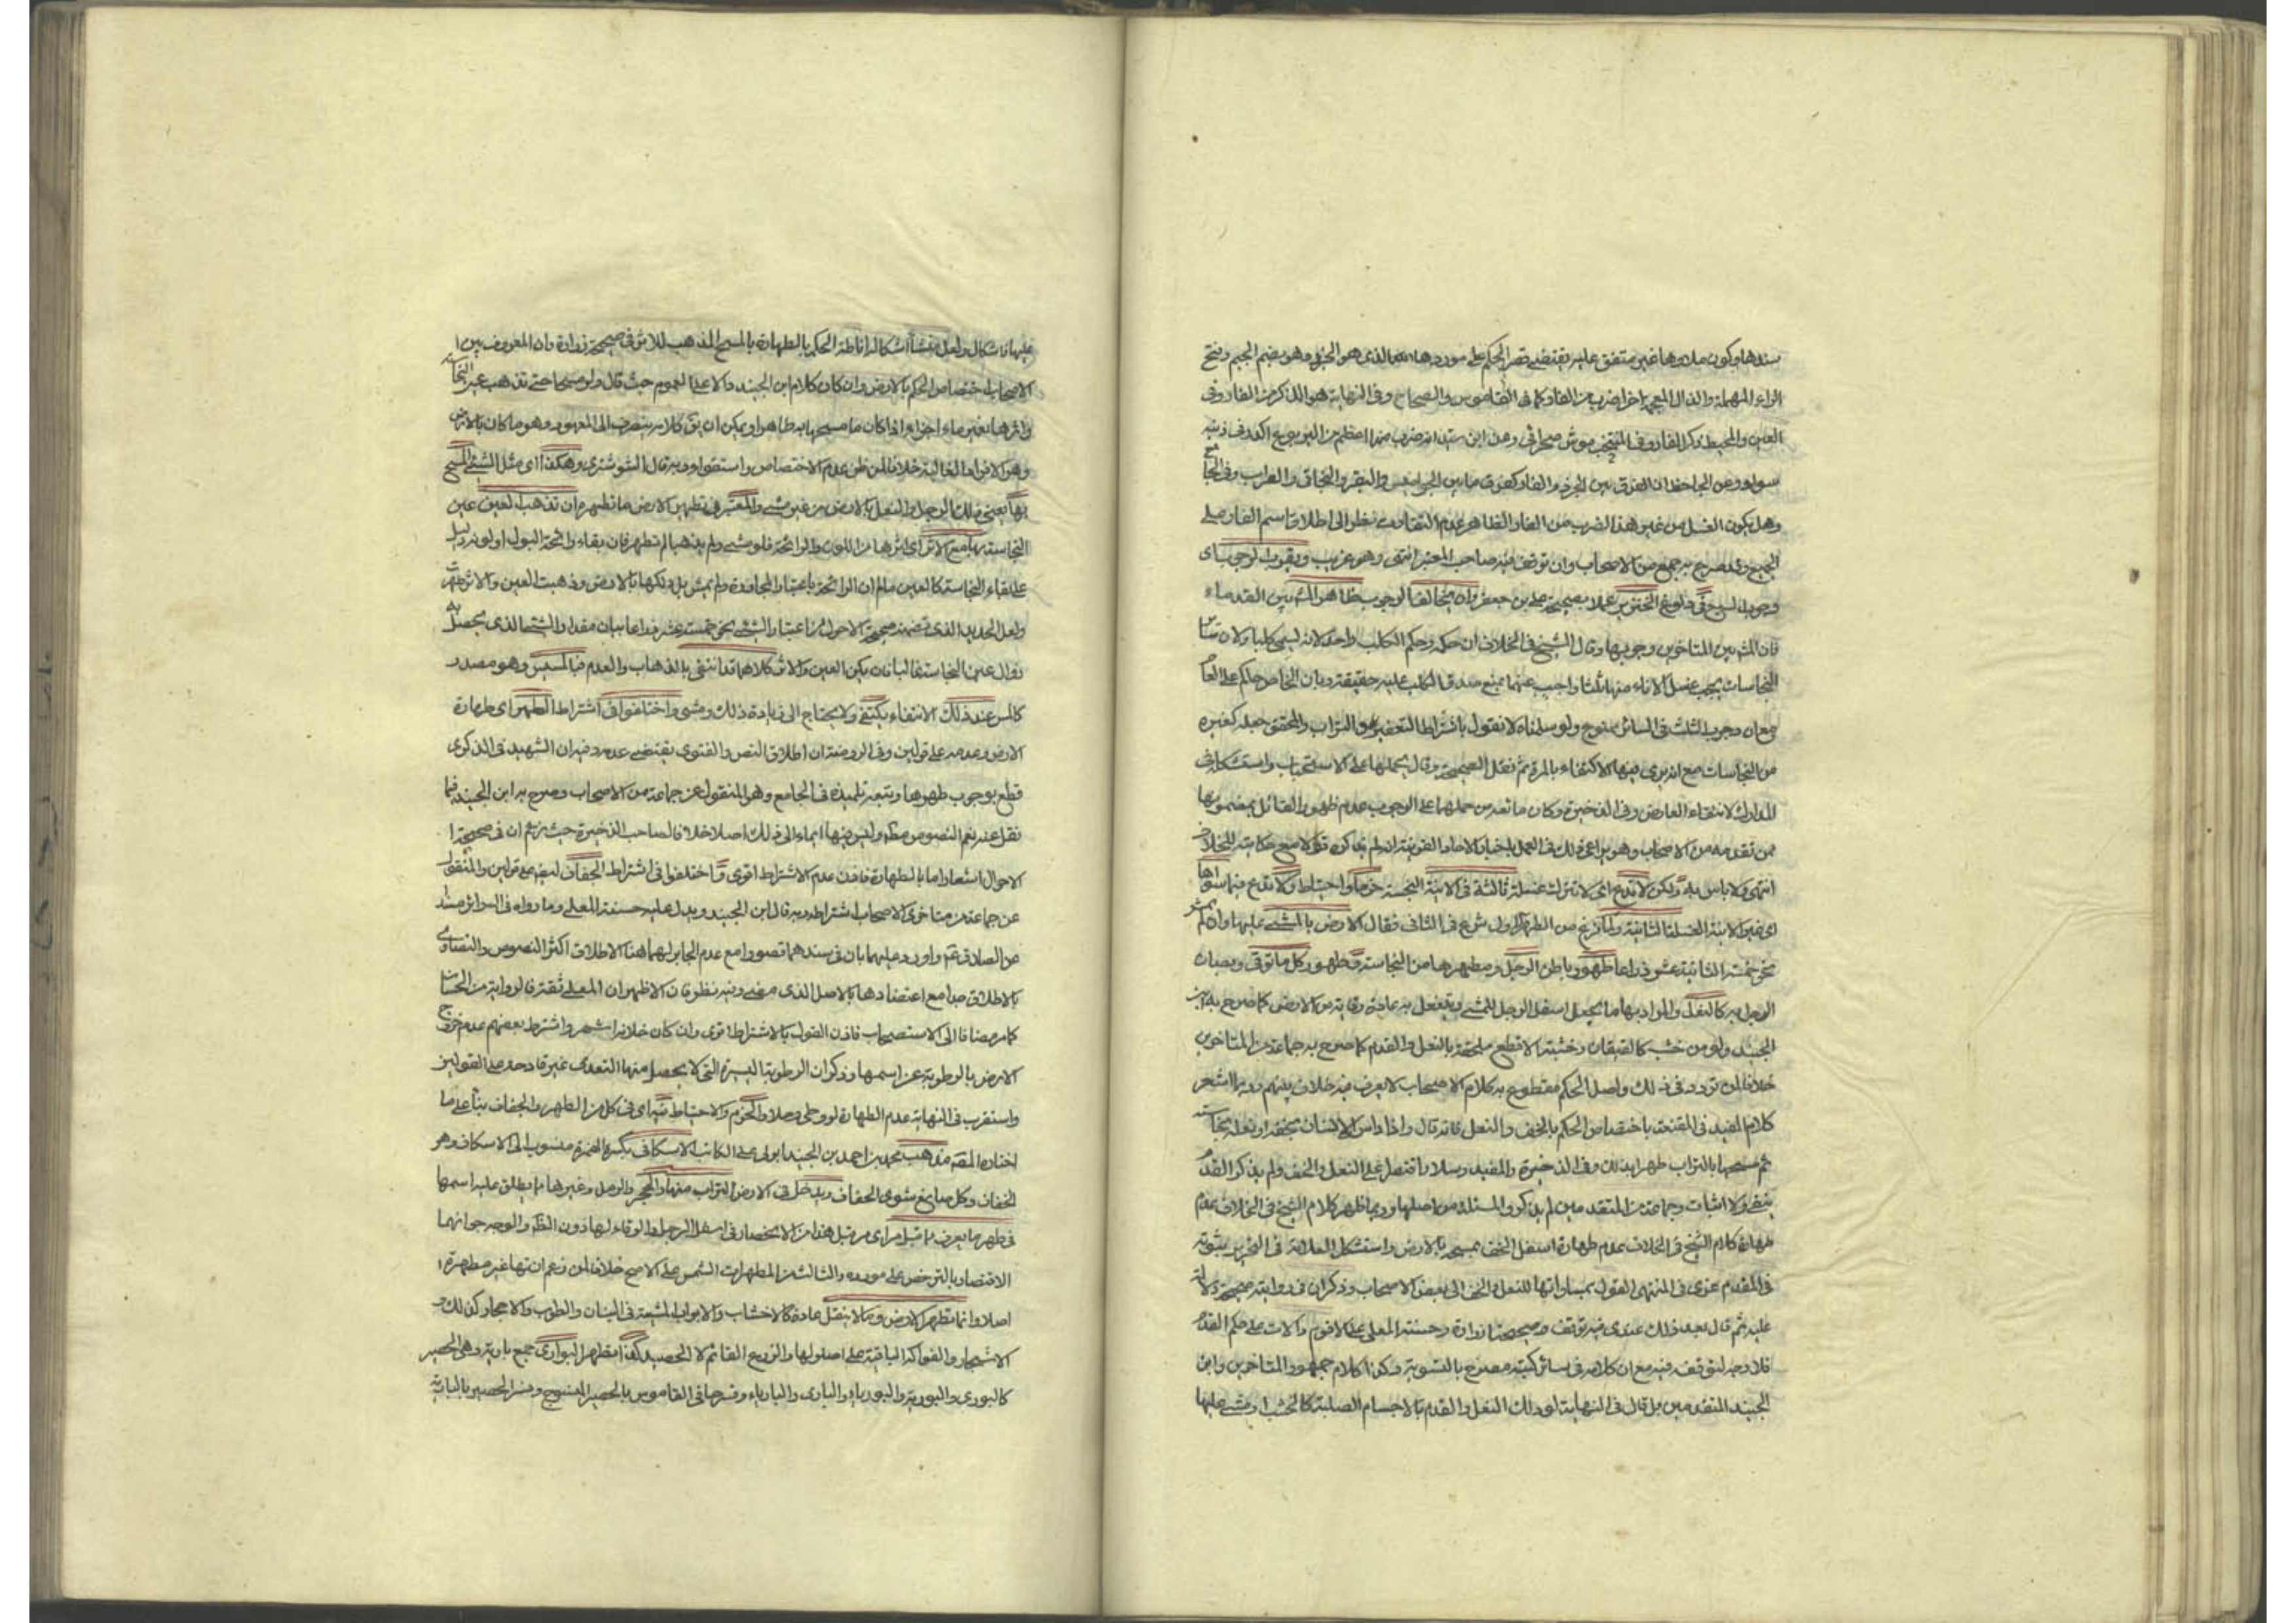 سندها وكون ملاوها غير متفق عليه يقتضى قصر الحكم على موردها الذى هو الجرذ وهو بضم الجيم وفتح
الراء المهملة والذال المعجمة اخرا ضرب من الفار كما فى القاموس والصحاح وفى النهاية هو الذكر من الفار وفى
العين والمحيط ذكر الفار وفى المنتخب موش صحرائى وعن ابن سيده انه ضرب منها اعظم من اليربوع اكدر فى ذنبه
سواد وعن الجاحظ ان الفرق بين الجرذ والفار كفرق ما بين الجواميس والبقر والبخاتى والعراب وفى الجامع
وهل يكون الغسل من غير هذا الضرب من الفار الظاهر عدم التفاوت نظرا الى اطلاق اسم الفار على
الجميع وقد صرح به جمع من الاصحاب وان توقف فيه صاحب المعتبر انتهى وهو غريب ويقوى الوجوب اى
وجوب السبع فى ولوغ الخنزير عملا بصحيحة على بن جعفر وان يخالف الوجوب ظاهر المش بين القدماء
فان المش بين المتاخرين وجوبها وقال الشيخ فى الخلاف ان حكمه وحكم الكلب واحد لانه ليسمى كلبا ولان سائر
النجاسات يجب غسل الاناء منها ثلثا واجيب عنهما بمنع صدق الكلب عليه حقيقة وبان الخاص حاكم على العام
مع ان وجوب الثلث فى السائر ممنوع ولو سلمناه لا نقول باشتراط التعفير وهو التراب والمحقق جعله كغيره
من النجاسات مع انه يرى فيها الاكتفاء بالمرة ثم نقل الصحيحة وقال بحملها على الاستحباب واستشكله فى
المدارك لانتفاء العارض وفى الذخيرة وكان مانعه من حملها على الوجوب عدم ظهور القائل بمضمونها
ممن تقدمه من الاصحاب وهو يراعى ذلك فى العمل باخبار الاحاد
انتهى ولا باس به ولكن لا تدع اى لا تترك غسلة ثالثة فى الانية النجسة حزما واحتياطا ولا تدع فيما سواها
اى غير الانية الغسلة الثانية ولما فرغ من الطهور الاول شرع فى الثانى فقال الارض بالمشى عليها وان لم يمش
نحو خمسة عشر ذراعا طهور باطن الرجل ومطهرها من النجاسة وطهور كل ما توقى ويصان
الرجل به كالنعل والمراد بها ما يجعل اسفل الرجل للمشى وينتعل به عادة وقاية من الارض كما صرح به ابن
الجنيد ولو من خشب كالقبقاب وخشبة الاقطع ملحقة بالنعل والقدم كما صرح به جماعة من المتاخرين
خلافا لمن تردد فى ذلك واصل الحكم مقطوع به كلام الاصحاب لا يعرف فيه خلاف بينهم وربما اشعر
كلام المفيد فى المقنعة باختصاص الحكم بالخف والنعل فانه قال واذا داس الانسان بخفه او نعله نجاسة
ثم مسحهما بالتراب طهرا بذلك وفى الذخيرة والمفيد وسلار اقتصرا على النعل والخف ولم يذكرا القدم
بنفى ولا اثبات وجماعة من المتقدمين لم يذكروا المسئلة من اصلها وربما ظهر كلام الشيخ فى الخلاف بعدم
طهارة كلام الشيخ فى الخلاف بعدم طهارة اسفل الخف بمسحه بالارض واستشكل العلامة فى التحرير ثبوته
فى القدم عزى فى المنتهى القول بمساواتها للنعل والخف الى بعض الاصحاب وذكر ان فى رواية صحيحة دلالة
عليه ثم قال بعد ذلك عندى فيه توقف وصحيحتا زرارة وحسنة المعلى على الاقوم دالات على حكم القدم
فلا وجه لتوقفه فيه مع ان كلامه فى سائر كتبه مصرح بالتسوية وكذا كلام جمهور المتاخرين وابن
الجنيد المتقدمين بل قال فى النهاية لو دلك النعل والقدم بالاجسام الصلبة كالخشب او مشى عليها
عليها فاشكال ولعل منشأ اشكاله اناطة الحكم بالطهارة بالمسح المذهب للاثر فى صحيحة زرارة وان المعروف بين
الاصحاب اختصاص الحكم بالارض وان كان كلام ابن الجنيد دالا على العموم حيث قال ولو مسحها حتى تذهب عين النجاسة
واثرها بغير ماء اجزاه اذا كان ما مسحها به طاهرا ويمكن ان يق كلامه ينصرف الى المعهود وهو ما كان بالارض
وهو الافراد الغالبة خلافا لمن ظن عدم الاختصاص واستقواه وبه قال الشوشترى وهكذا اى مثل المشى المسح
بها يعنى دلك الرجل والنعل بالارض من غير مشى والمعتبر فى تطهير الارض ما تطهره ان تذهب العين عين
النجاسة بها مع الاثر اى اثرها من اللون والرائحة فلو مشى ولم يذهبا لم تطهر فان بقاء رائحة البول او لونه دليل
على بقاء النجاسة كالعين ما لم ان الرائحة باعتبار المجاورة ولم يمش بل دلكها بالارض وذهبت العين والاثر طهرت
ولعل التحديد الذى تضمنه صحيحة الاحول من اعتبار المشى نحو خمسة عشر ذراعا بيان مقدار المشى الذى يحصل به
زوال عين النجاسة غالبا فان يكن العين والاثر كلاهما قد انتفى بالذهاب والعدم فالمس وهو مصدر
كالمس عند ذلك الانتفاء يكتفى ولا يحتاج الى زيادة ذلك ومشى واختلفوا فى اشتراط الطهر اى طهارة
الارض وعدمه على قولين وفى الروضة ان اطلاق النص والفتوى يقتضى عدمه وفيه ان الشهيد فى الذكرى
قطع بوجوب طهرها وتبعه تلميذه فى الجامع وهو المنقول عن جماعة من الاصحاب وصرح به ابن الجنيد فيما
نقل عنه نعم النصوص مطلقة وليس فيها ايماء الى ذلك اصلا خلافا لصاحب الذخيرة حيث زعم ان فى صحيحة
الاحول اشعارا ما بالطهارة فاذن عدم الاشتراط اقوى وا ختلفوا فى اشتراط الجفاف لبعض مع قولين والمنقول
عن جماعة من متاخرى الاصحاب اشتراطه وبه قال ابن الجنيد ويدل عليه حسنة المعلى وما رواه فى السرائر مسندا
عن الصادق ع واورد عليهما بان فى سندهما قصورا مع عدم الجابر لهما هنا لاطلاق اكثر النصوص والفتاوى
بالاطلاق صدا مع اعتضادها بالاصل الذى مضى وفيه نظر فان الاظهر ان المعلى ثقة فالرواية من الحسان
كما مر مضافا الى الاستصحاب فاذن القول بالاشتراط اقوى وان كان خلافه اشهر واشترط بعضهم عدم خروج
الارض بالرطوبة عن اسمها وذكر ان الرطوبة اليسيرة التى لا يحصل منها التعدى غير قادحة على القولين
واستقرب فى النهاية عدم الطهارة لو وطى وحلا والحزم والاحتياط فيه اى فى كل من الطهر والجفاف بناء على ما
اختاره المقه مذهب محمد بن احمد بن الجنيد ابو على الكاتب الاسكافى بكسر الهمزة منسوب الى الاسكاف وهو
الخفاف وكل صانع سوى الخفاف ويدخل فى الارض التراب منها والحجر والرمل وغيرها مما يطلق عليه اسمها
فى طهر ما يعرف مما قبل مر اى مر قبل هذا من الانحصار فى اسفل الرجل والوقاء لها دون الظهر والوجه جوانبهما
الاقتصار بالترخص على مورده والثالث من المطهرات الشمس على الاصح خلافا لمن زعم انها غير مطهرة
اصلا وانما تطهر الارض وما لا ينقل عادة كالاخشاب والابواب المثبتة فى البنيان والطوب والاحجار كذلك و
الاشجار والفواكه الباقية على اصولها والزرع القائم لا الحصيد كذا مطهر البوارى جمع بارية وهى الحصير
كالبورى والبورية والبورياء والبارى والبارياء وفسرها فى القاموس بالحصير المنسوج وفسر الحصير بالبارية